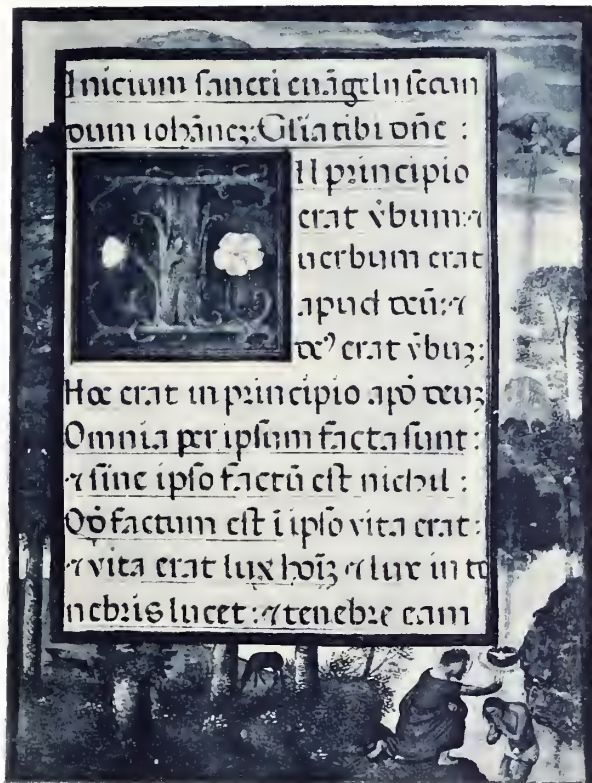 Inicium sancti euāgelii secun
dum iohānez: Glīa tibi dñe :
IN principio
erat v̇bum: ⁊
uerbum erat
apud deū: ⁊
deꝰ erat v̇buʒ:
Hoc erat in principio apḋ deuʒ
Omnia per ipsum facta sunt :
⁊ sine ipso factū est nichil :
Qḋ factum est ī ipso vita erat:
⁊ vita erat lux hoīʒ ⁊ lux in te
nebris lucet: ⁊ tenebre eam